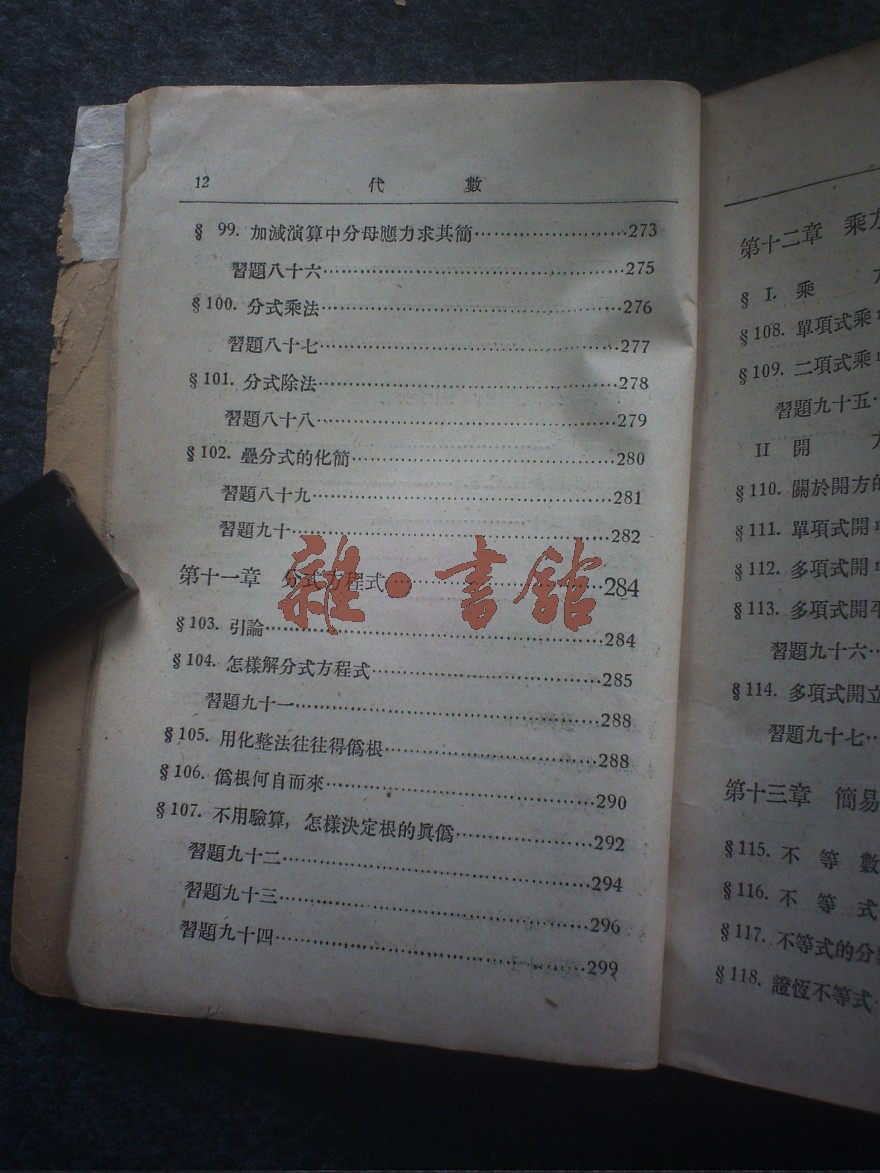 12 代 數
§ 99. 加減演算中分母應力求其簡……………………273
習題八十六……………………275
§100. 分式乘法……………………276
習題八十七……………………277
§101. 分式除法……………………278
習題八十八……………………279
§102. 疊分式的化簡……………………280
習題八十九……………………281
習題九十……………………282
第十一章 分式方程式……………………284
§103. 引論……………………284
§104. 怎樣解分式方程式……………………285
習題九十一……………………288
§105. 用化整法往往得僞根……………………288
§106. 僞根何自而來……………………290
§107. 不用驗算, 怎樣決定根的眞僞……………………292
習題九十二……………………294
習題九十三……………………296
習題九十四……………………299
雜·書館
第十二章 乘方
§ I. 乘 方
§108. 單項式乘
§109. 二項式乘
習題九十五…
II 開 方
§110. 關於開方的
§111. 單項式開
§112. 多項式開
§113. 多項式開平
習題九十六…
§114. 多項式開立
習題九十七…
第十三章 簡易
§115. 不 等 數
§116. 不 等 式
§117. 不等式的分
§118. 證恆不等式